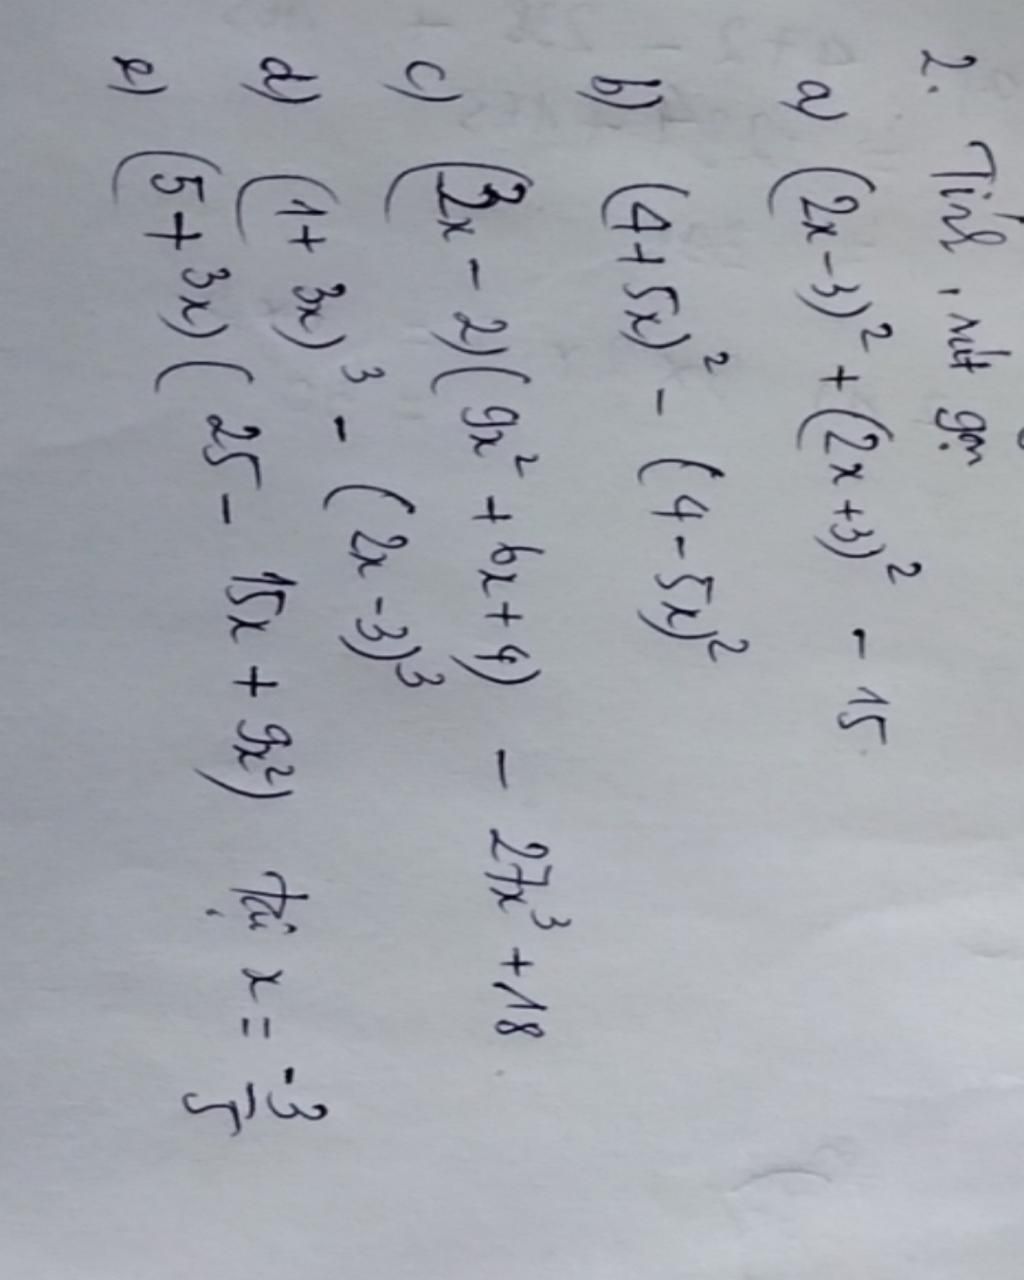 2. Tính, rút gọn
a) (2x-3)² + (2x+3)² - 15
b) (4+5x)² - (4-5x)²
c) (3x-2)(9x²+6x+4) - 27x³+18
d) (1+3x)³ - (2x-3)³
e) (5+3x)(25-15x+9x²) tại x = -3/5